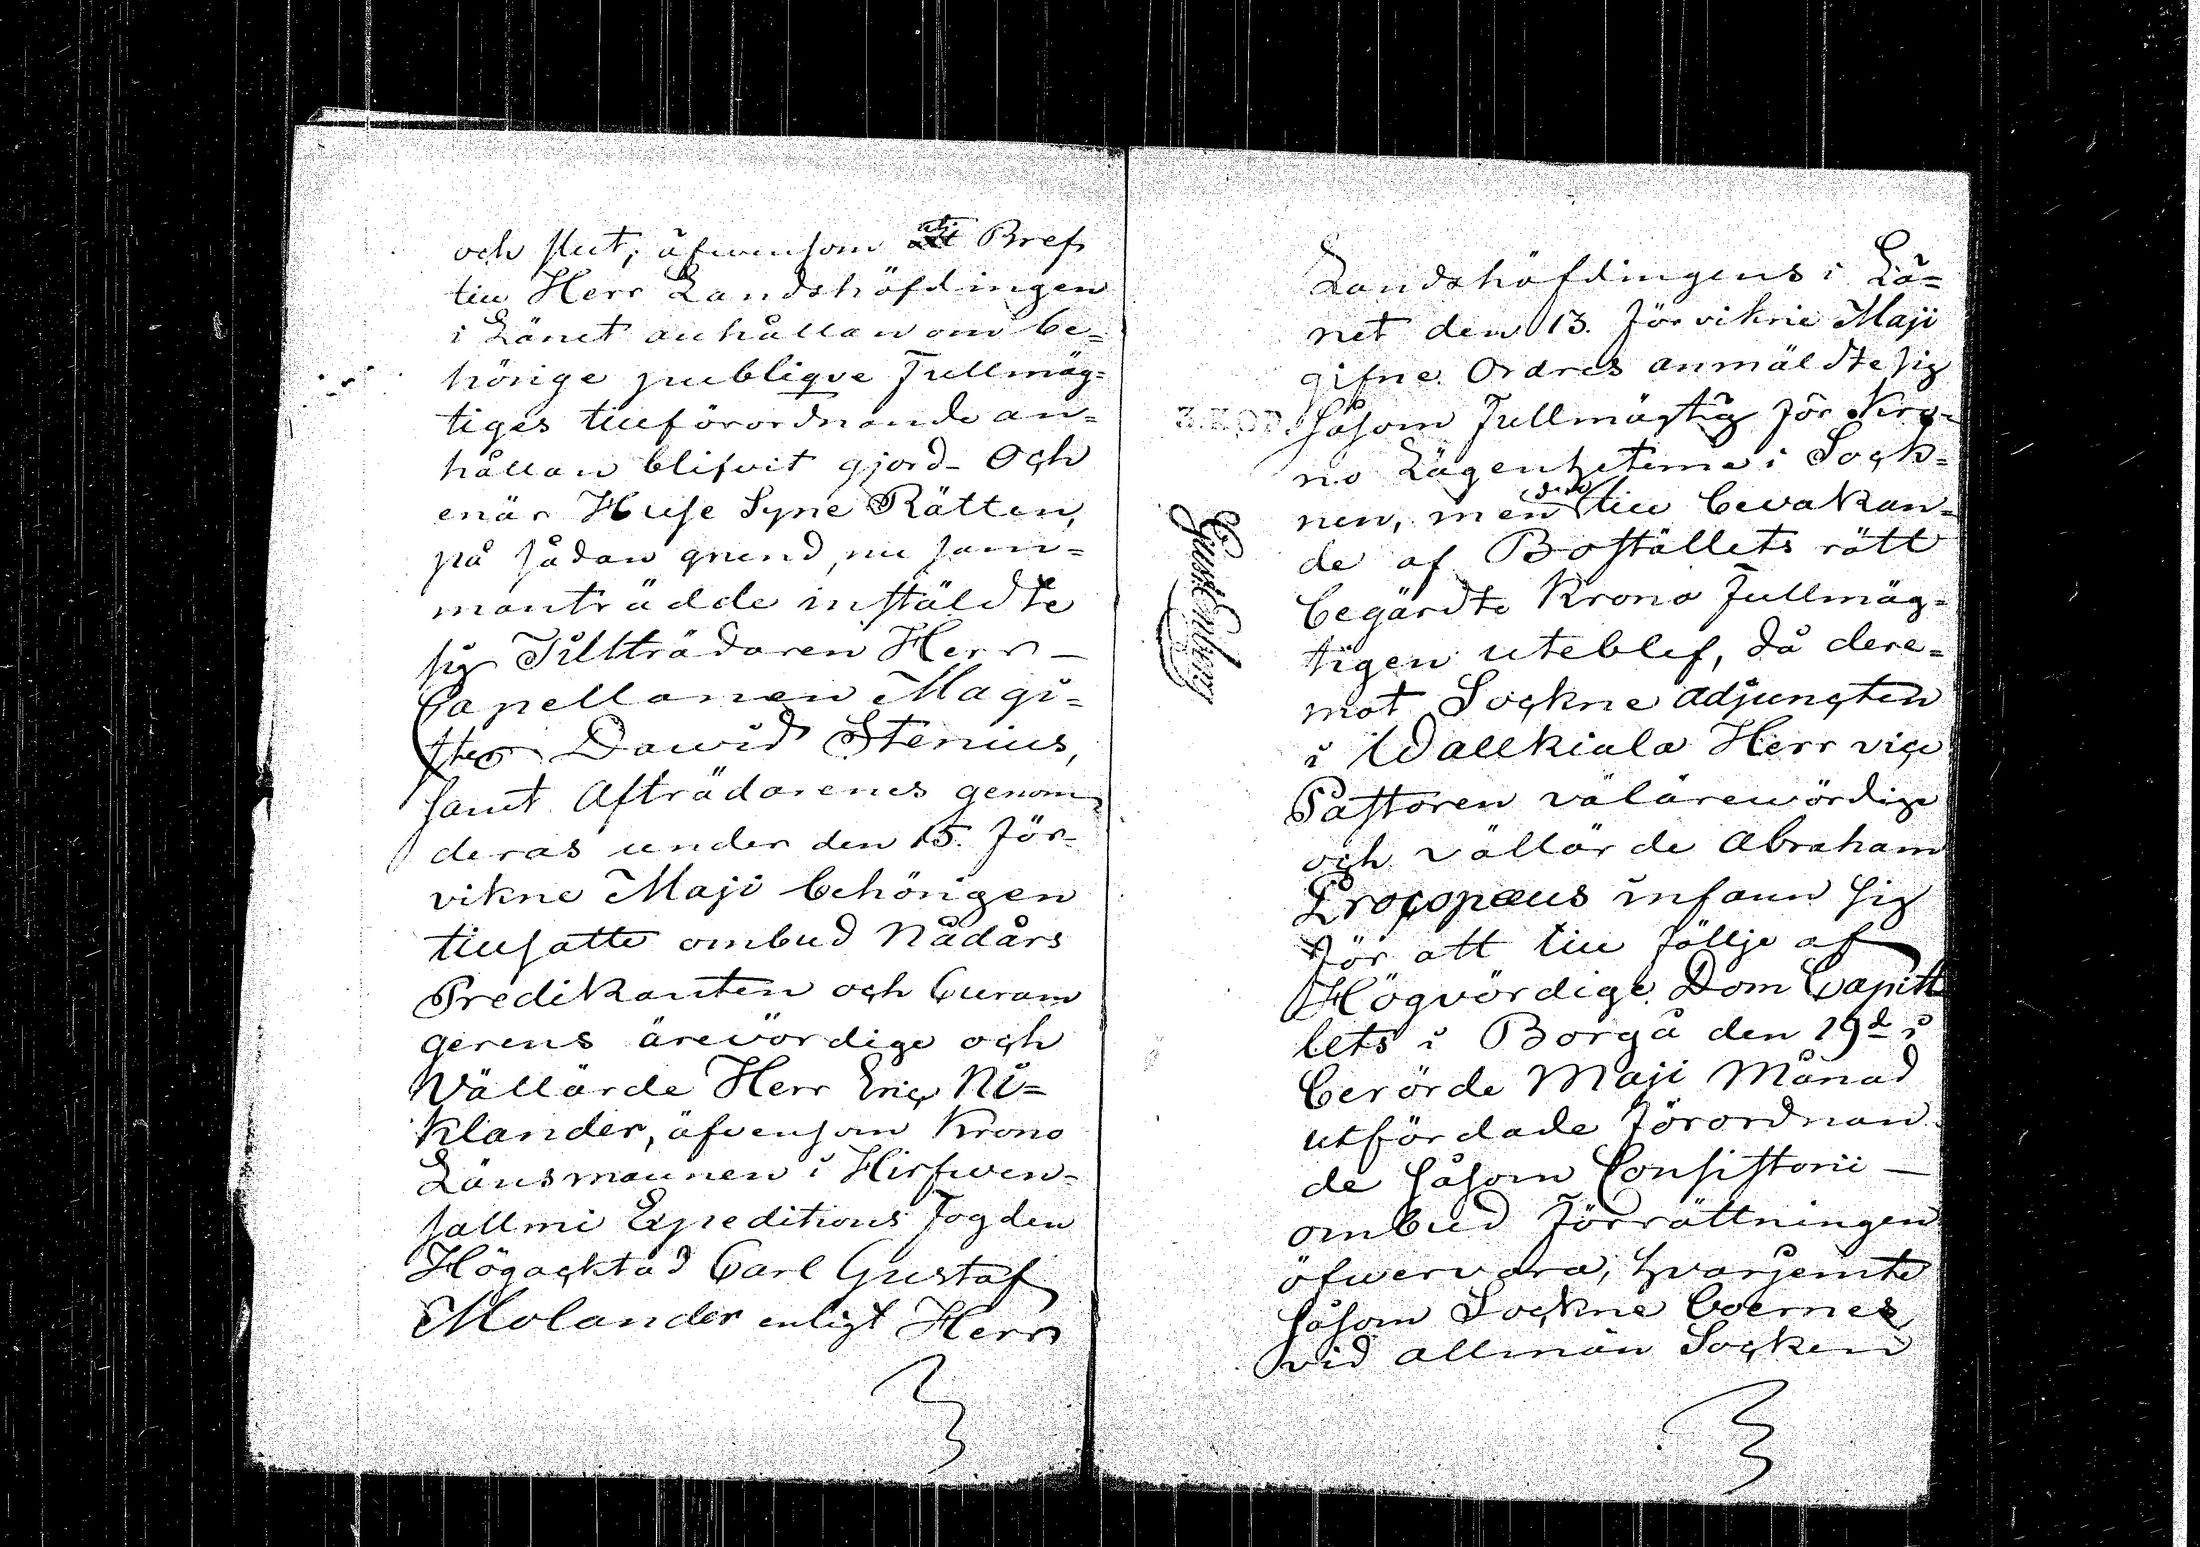 och slut, äfwensom uti Bref
till Herr Landshöfdingen
i Länet anhållan om be-
hörige publiqve Fullmäg-
tiges tillförordnande an-
hållan blifvit gjord. Och
enär Huse Syne Rätten,
på sådan grund, nu sam-
manträdde instäldte
sig Tillträdaren Herr
Capellanen Magi-
ster David Stenius,
samt Afträdarenes genom
deras under den 15. för-
vikne Maji behörigen
tillsatte ombud Nådårs
Predikanten och Curam
gerens ärevördige och
Vällärde Herr Eric Ni-
klander, äfvensom Krono
Länsmannen i Hirfwen-
sallmi Expeditions Fogden
Högacktad Carl Gustaf
Molander enligt Herr
Landshöfdingens i Lä-
net den 13. förvikne Maji
gifne Ordres anmäldte sig
såsom Fullmägtig för Kro-
no Lägenheterne i Sock-
nen, men den till bevakan-
de af Boställets rätt
begärdte Krono Fullmäg-
tigen uteblef, då dere-
mot Sockne Adjuncten
i Wallkiala Herr vice
Pastoren välärewördige
och vällärde Abraham
Procopæus infann sig
för att till följje af
Högvördige Dom Capitt
lets i Borgå den 19d i
berörde Maji Månad
utfördade förordnan
de såsom Consistorii
ombud förrättningen
öfwervara, hvarjemte
såsom Sockne
vid allmän Socken